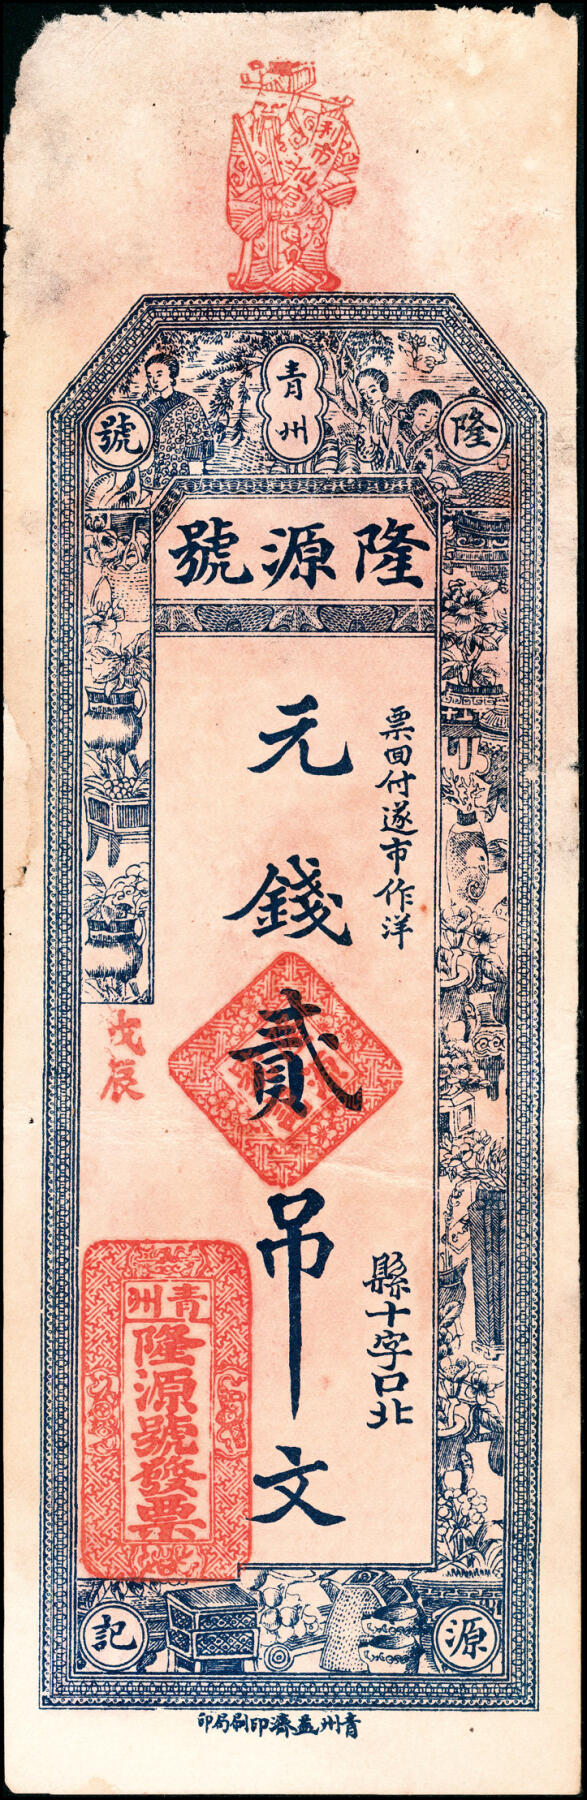 利市仙官
青州
隆
號
源
記
隆源號
票回付遂市作洋
縣十字口北
元錢貳吊文
戊辰
青州
隆源號發票
青州益濟印刷局印